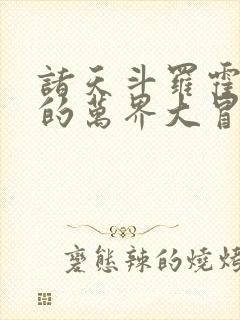 諸天斗羅霍
的萬界大冒
變態辣的燒烤